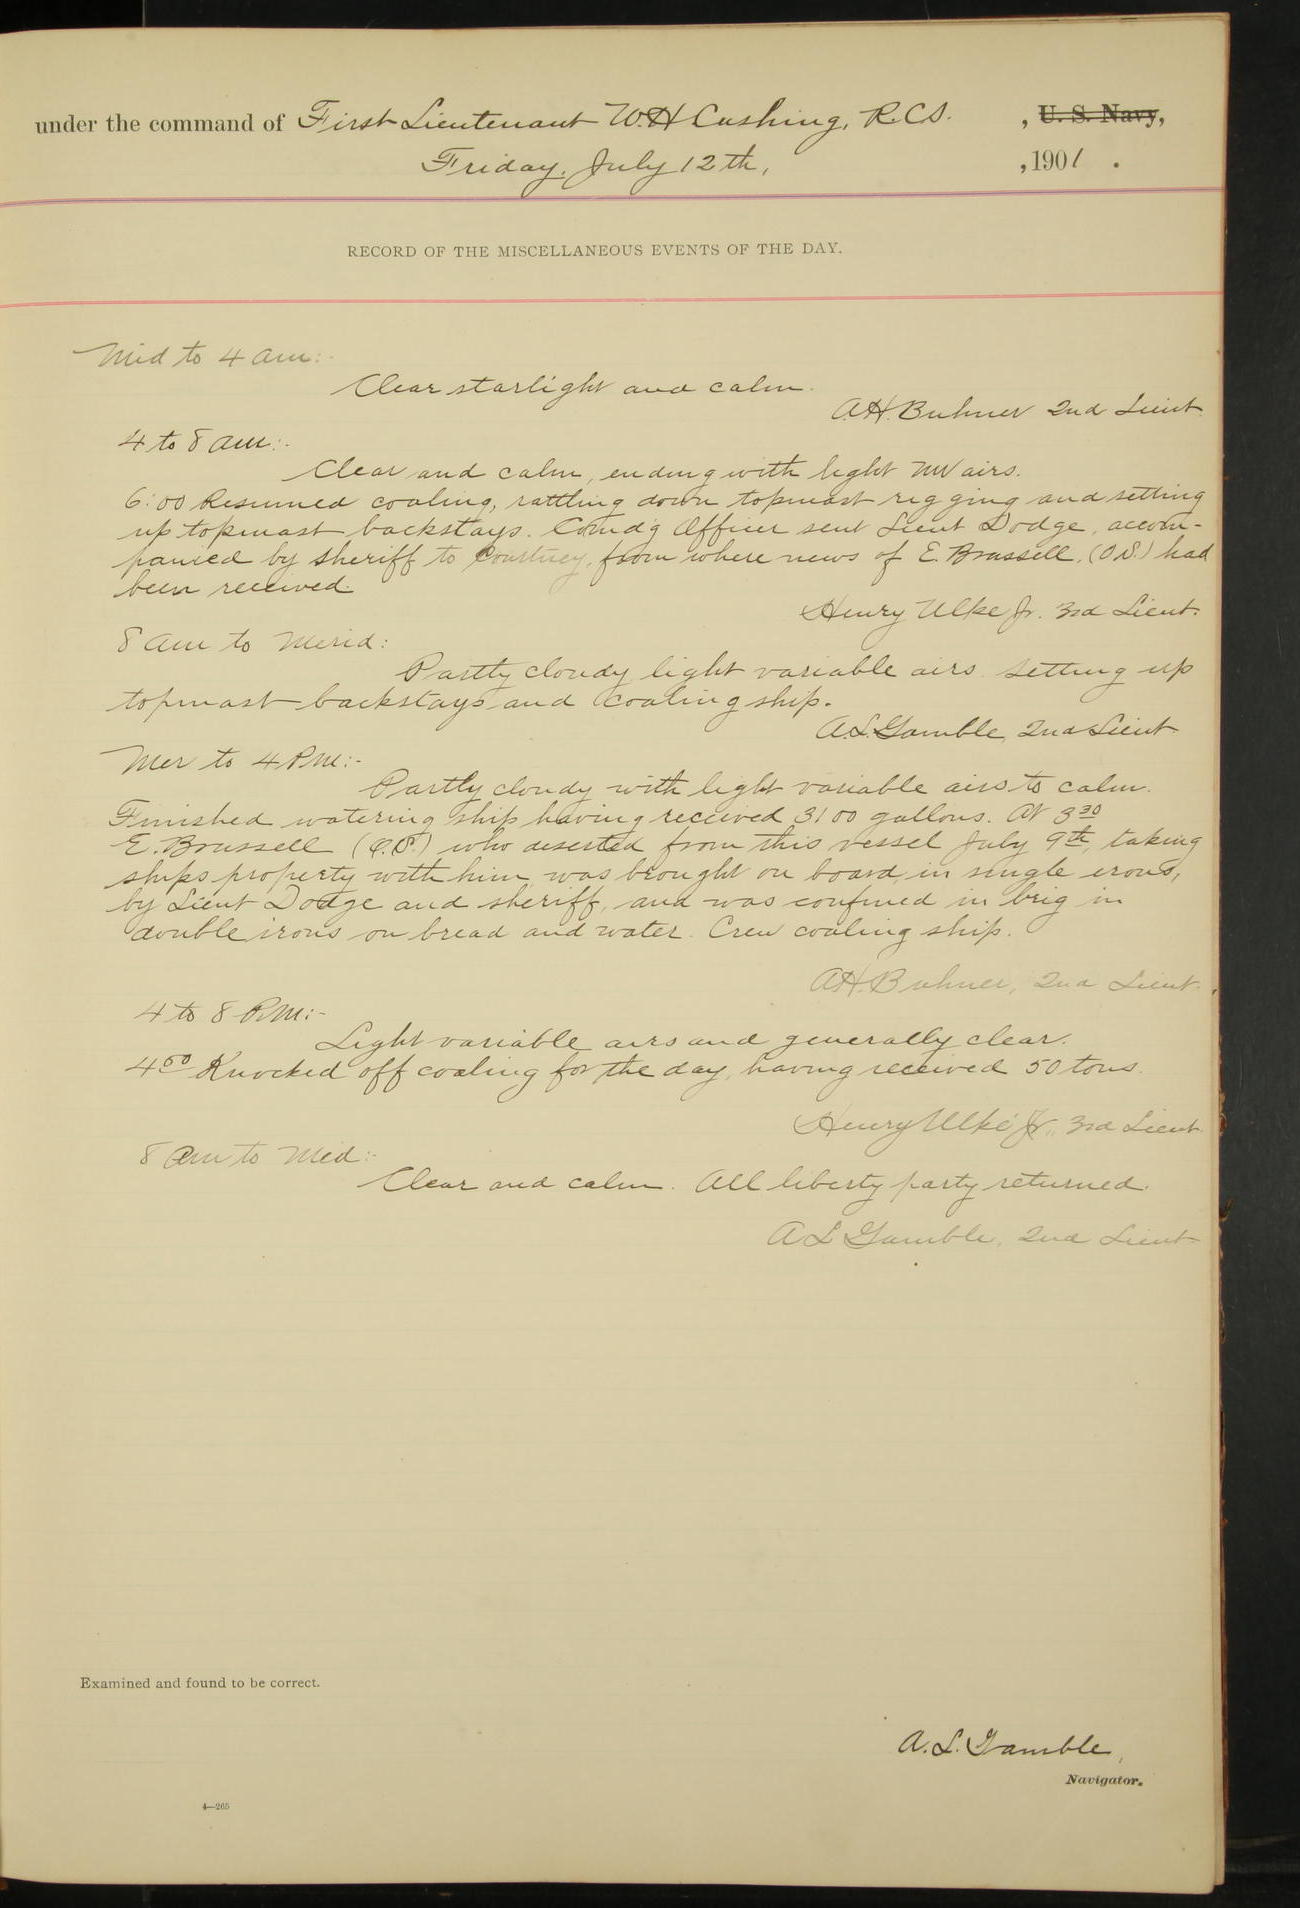 under the command of First Lieutenant W.H. Cushing, R.C.S. , U. S. Navy,
Friday, July 12th, , 1901 .
RECORD OF THE MISCELLANEOUS EVENTS OF THE DAY.
Mid to 4 am:-
Clear starlight and calm.
A.H. Buhner 2nd Lieut.
4 to 8 am:-
Clear and calm, ending with light NW airs.
6:00 Resumed coaling, rattling down topmast rigging and setting
up topmast backstays. Comd'g Officer sent Lieut Dodge, accom-
panied by sheriff to Courtney, from where news of E. Brussell, (O.S.) had
been received.
Henry Ulke Jr. 3rd Lieut.
8 am to Merid:
Partly cloudy light variable airs. Setting up
topmast backstays and coaling ship.
A.L. Gamble, 2nd Lieut
Mer to 4 PM:-
Partly cloudy with light variable airs to calm.
Finished watering ship having received 3100 gallons. At 3 30
E. Brussell (O.S.) who deserted from this vessel July 9th, taking
ships property with him, was brought on board, in single irons,
by Lieut Dodge and sheriff, and was confined in brig in
double irons on bread and water. Crew coaling ship.
A.H. Buhner, 2nd Lieut.
4 to 8 PM:-
Light variable airs and generally clear.
4 50 Knocked off coaling for the day, having received 50 tons.
Henry Ulke Jr., 3rd Lieut
8 am to Mid:-
Clear and calm. All liberty party returned.
A L Gamble, 2nd Lieut
Examined and found to be correct.
A. L. Gamble,
Navigator.
4—265